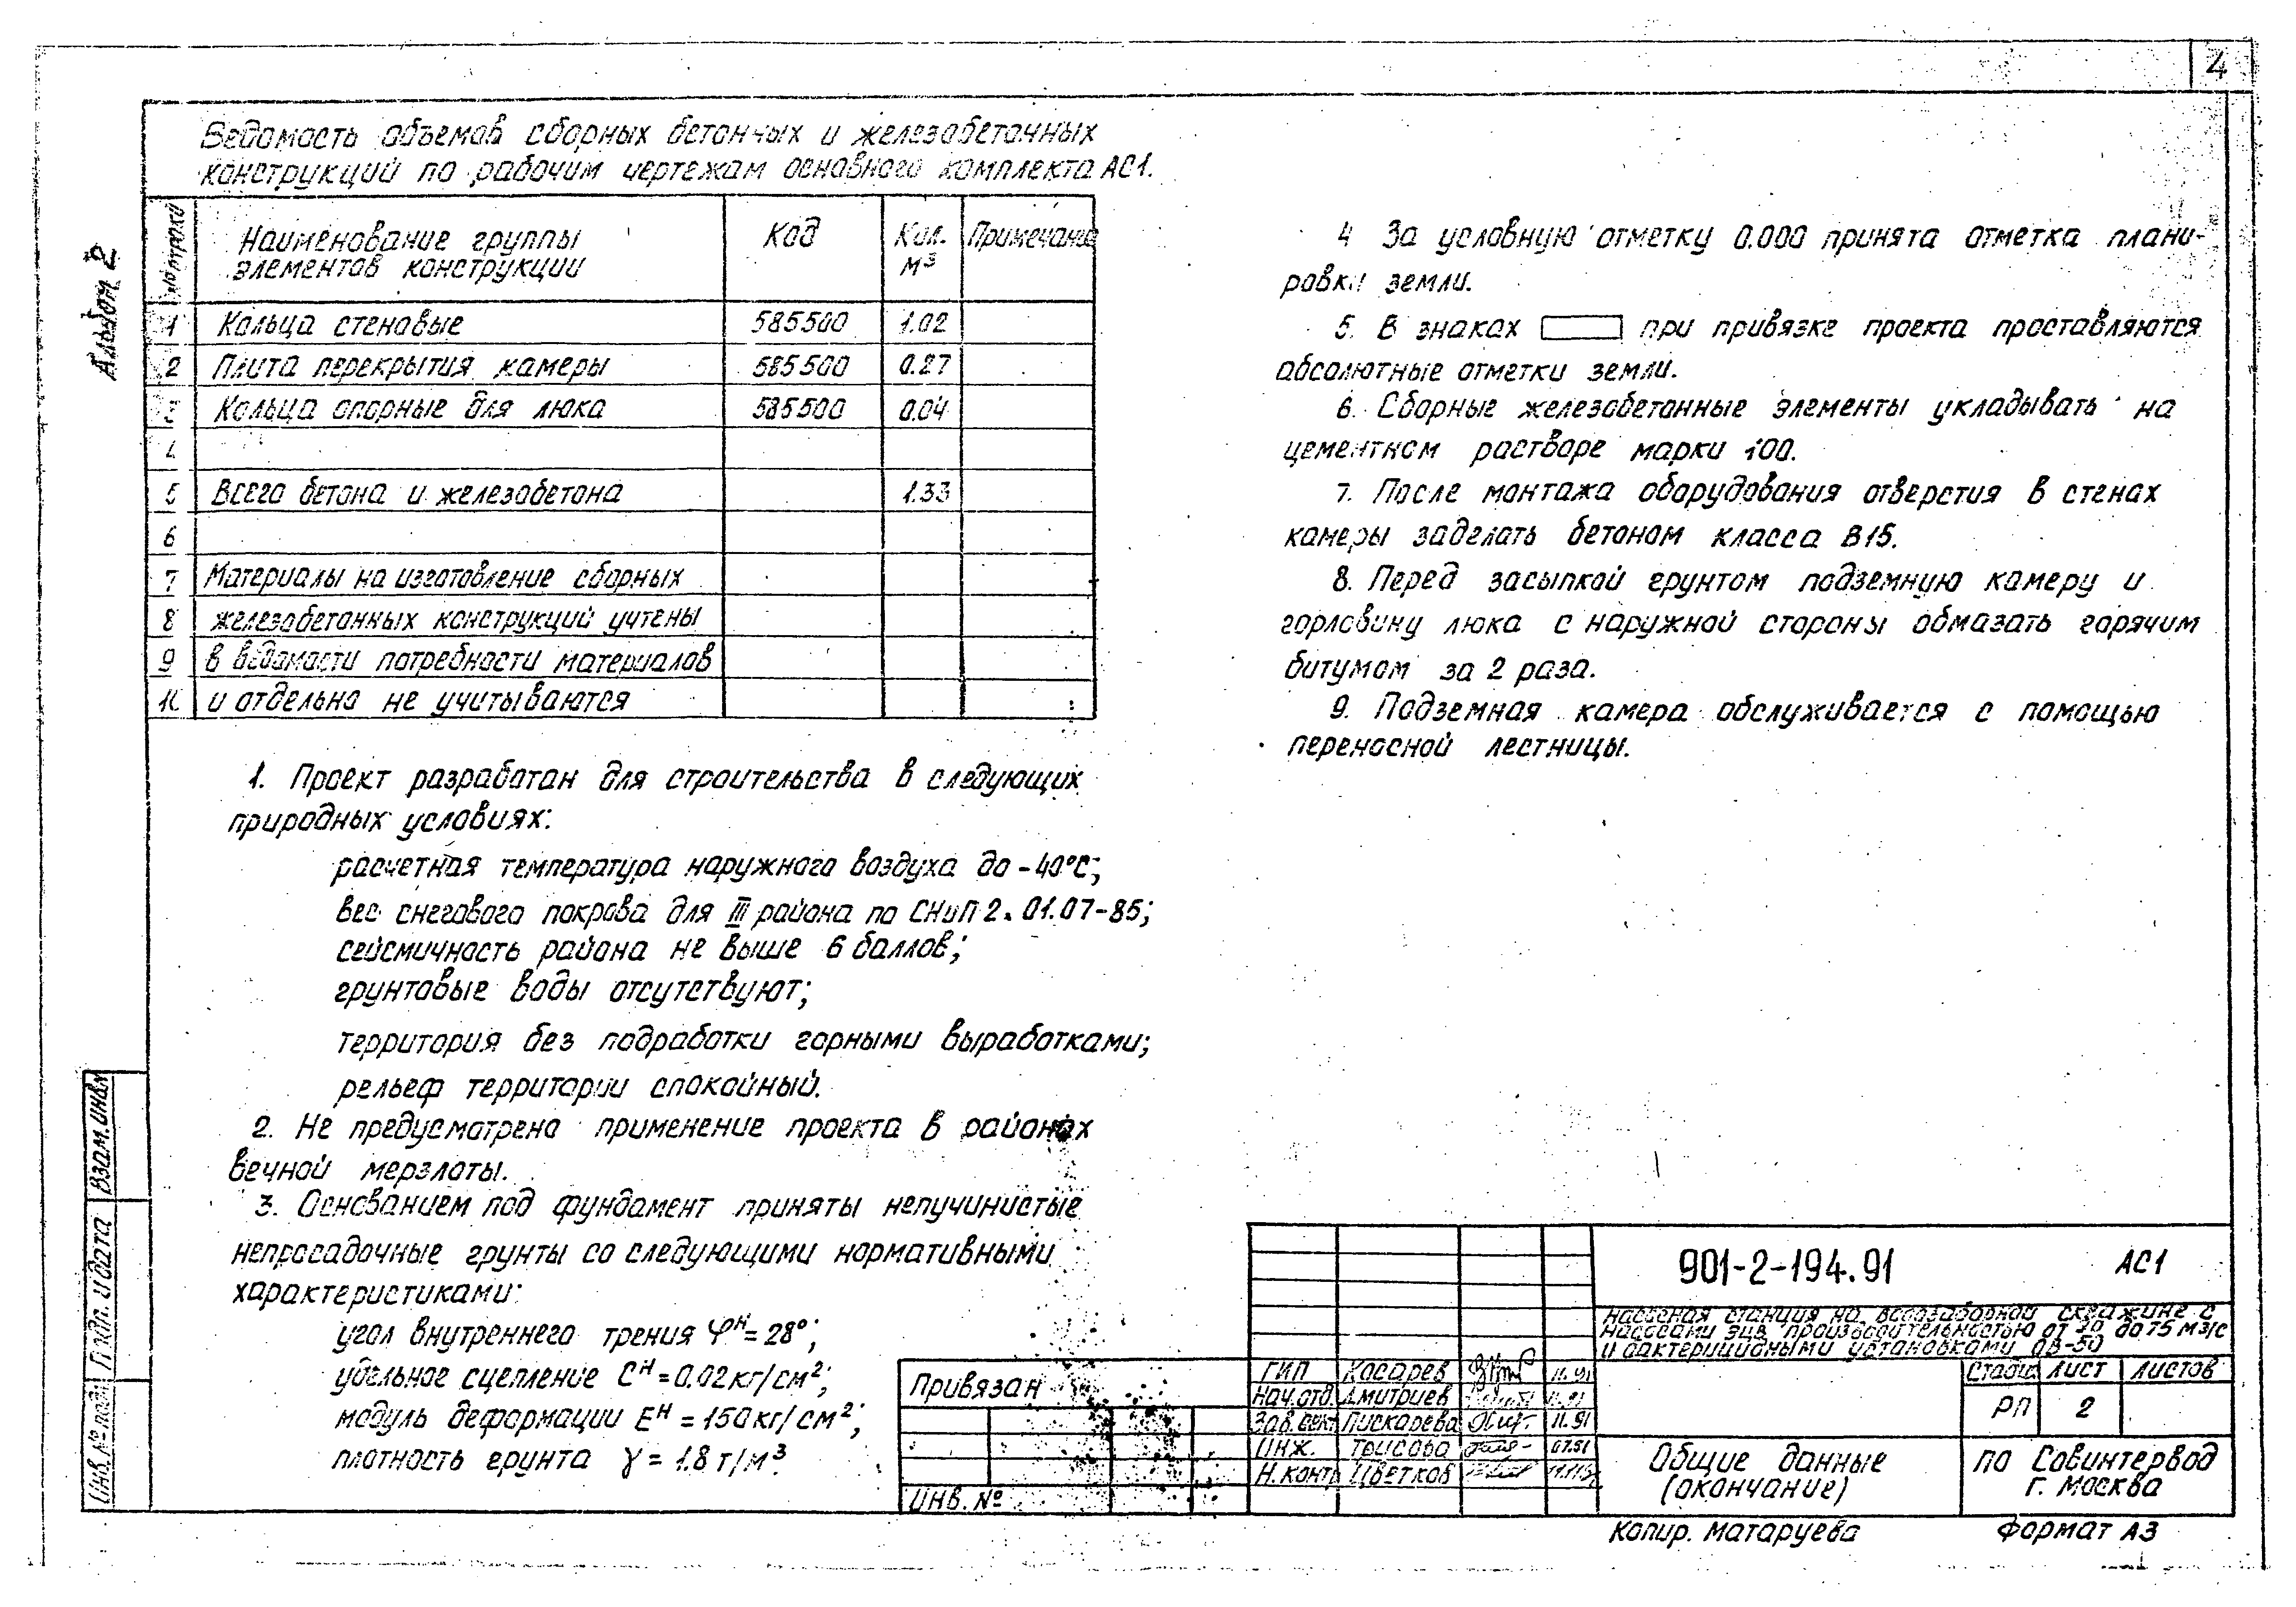 4
Альбом 2
Ведомость объемов сборных бетонных и железобетонных
конструкций по рабочим чертежам основного комплекта АС1.
№ строки
Наименование группы
элементов конструкции
Код
Кол.
м³
Примечание
1 Кольца стеновые 585500 1.02
2 Плита перекрытия камеры 585500 0.27
3 Кольца опорные для люка 585500 0.04
4
5 Всего бетона и железобетона 1.33
6
7 Материалы на изготовление сборных
8 железобетонных конструкций учтены
9 в ведомости потребности материалов
10 и отдельно не учитываются
1. Проект разработан для строительства в следующих
природных условиях:
расчетная температура наружного воздуха до -40°С;
вес снегового покрова для III района по СНиП 2.01.07-85;
сейсмичность района не выше 6 баллов;
грунтовые воды отсутствуют;
территория без подработки горными выработками;
рельеф территории спокойный.
2. Не предусмотрено применение проекта в районах
вечной мерзлоты.
3. Основанием под фундамент приняты непучинистые
непросадочные грунты со следующими нормативными
характеристиками:
угол внутреннего трения φᴴ = 28°;
удельное сцепление Cᴴ = 0.02 кг/см²;
модуль деформации Eᴴ = 150 кг/см²;
плотность грунта γ = 1.8 т/м³
4 За условную отметку 0.000 принята отметка плани-
ровки земли.
5. В знаках при привязке проекта проставляются
абсолютные отметки земли.
6. Сборные железобетонные элементы укладывать на
цементном растворе марки 100.
7. После монтажа оборудования отверстия в стенах
камеры заделать бетоном класса В15.
8. Перед засыпкой грунтом подземную камеру и
горловину люка с наружной стороны обмазать горячим
битумом за 2 раза.
9. Подземная камера обслуживается с помощью
переносной лестницы.
Взам.инв.№
Подп. и дата
Инв.№ подл.
Привязан
Инв. №
ГИП Косарев 11.91
Нач.отд. Дмитриев 11.91
Зав.сект. Пискарева 11.91
Инж. 07.91
Н.контр Цветков
901-2-194.91 АС1
Насосная станция на водозаборной скважине с
насосами ЭЦВ производительностью от 20 до 75 м3/с
и бактерицидными установками ОВ-50
Стадия Лист Листов
РП 2
Общие данные
(окончание)
ПО Совинтервод
г. Москва
Копир. Матаруева
Формат А3